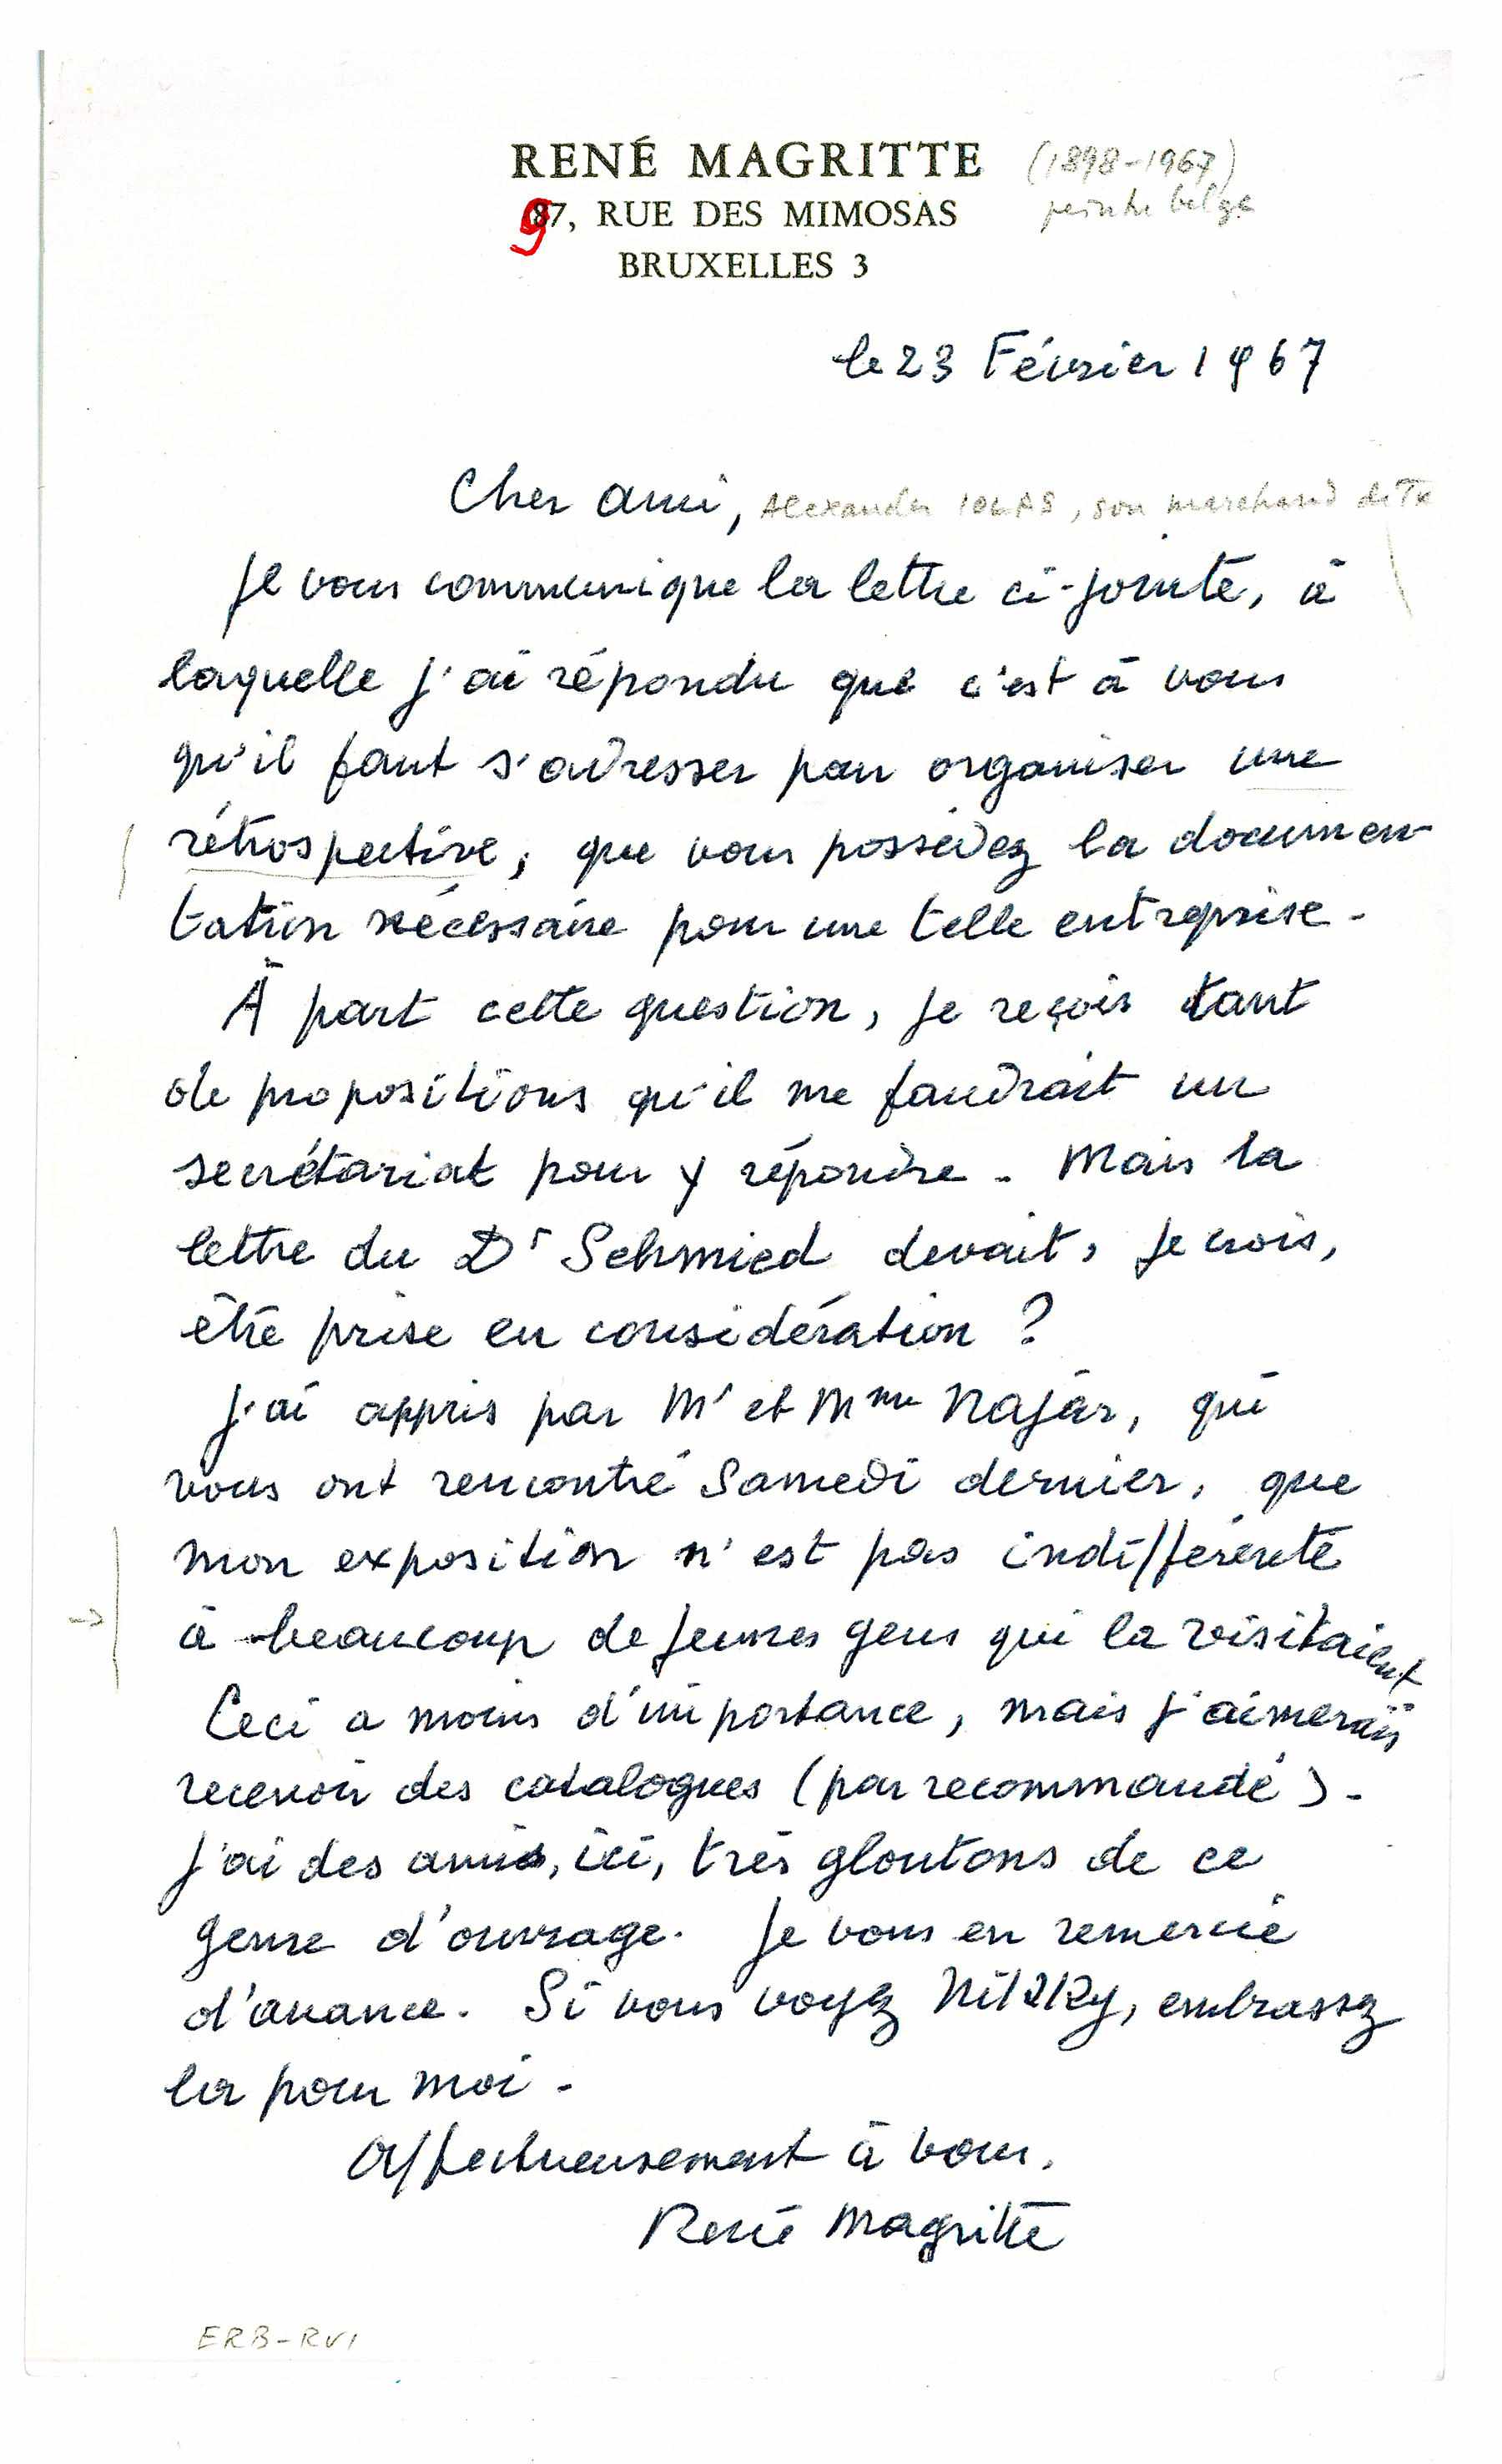 RENÉ MAGRITTE (1898-1967)
97, RUE DES MIMOSAS peintre belge
BRUXELLES 3
le 23 Février 1967
Cher ami, Alexander IOLAS, son marchand
Je vous communique la lettre ci-jointe, à
laquelle j'ai répondu que c'est à vous
qu'il faut s'adresser pour organiser une
rétrospective, que vous possédez la documen-
tation nécessaire pour une telle entreprise.
À part cette question, je reçois tant
de propositions qu'il me faudrait un
secrétariat pour y répondre. Mais la
lettre du Dr Schmied devait, je crois,
être prise en considération ?
J'ai appris par Mr et Mme Najar, qui
vous ont rencontré Samedi dernier, que
mon exposition n'est pas indifférente
à beaucoup de jeunes gens qui la visitaient
Ceci a moins d'importance, mais j'aimerais
recevoir des catalogues (par recommandé).
J'ai des amis, ici, très gloutons de ce
genre d'ouvrage. Je vous en remercie
d'avance. Si vous voyez Nikky, embrassez
la pour moi.
Affectueusement à vous,
René Magritte
ERB-RVI